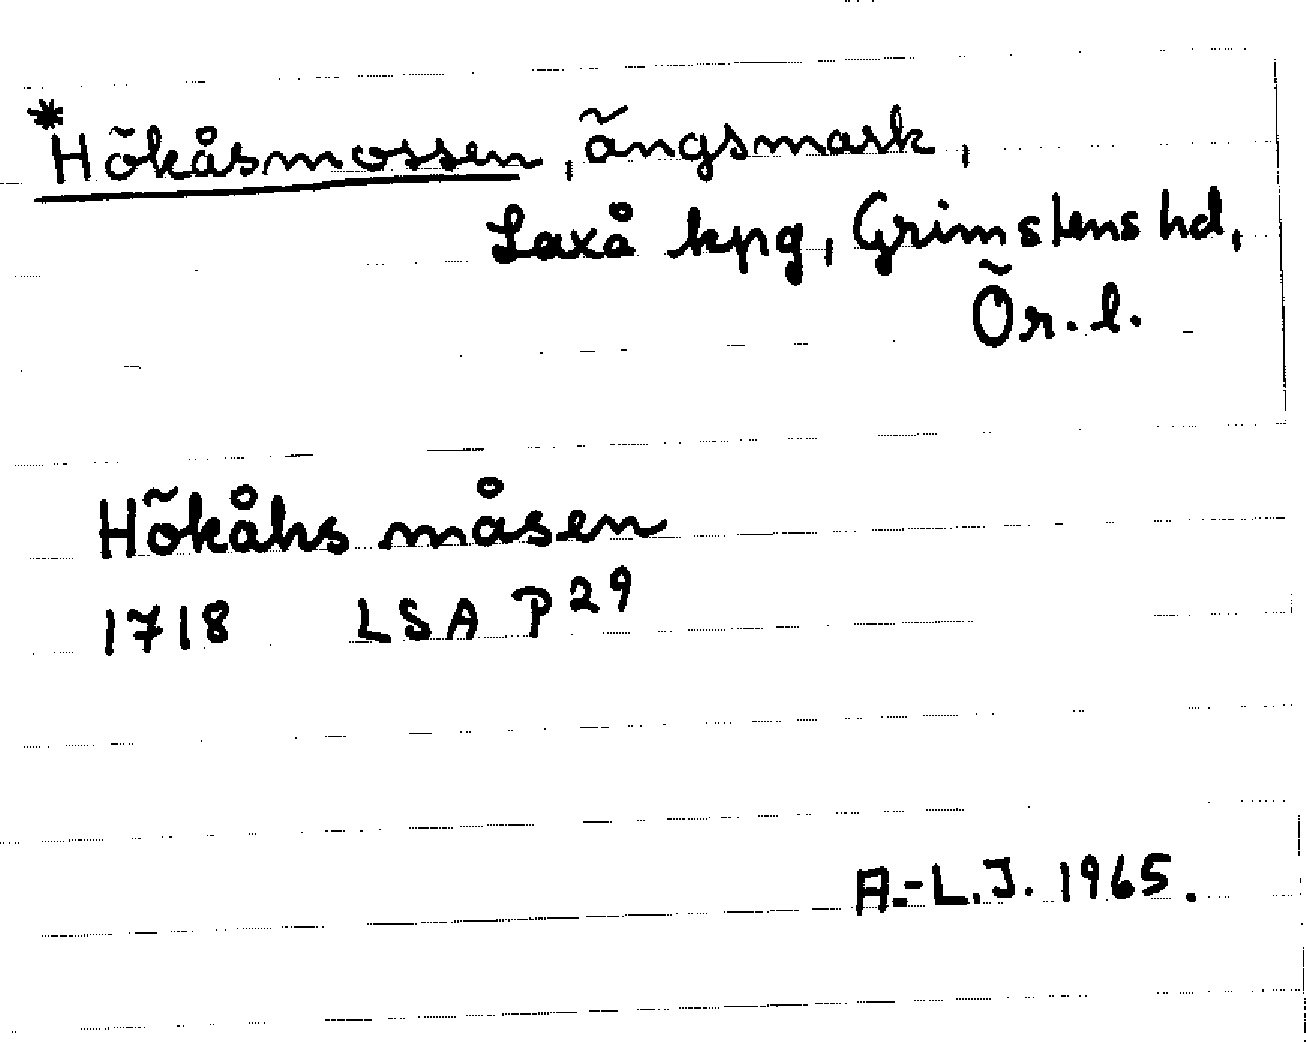 *Hökåsmossen, ängsmark,
Laxå kpg, Grimstens hd,
Ör. l.
Hökåhs måsen
1718 LSA P 29
A.-L.J. 1965.